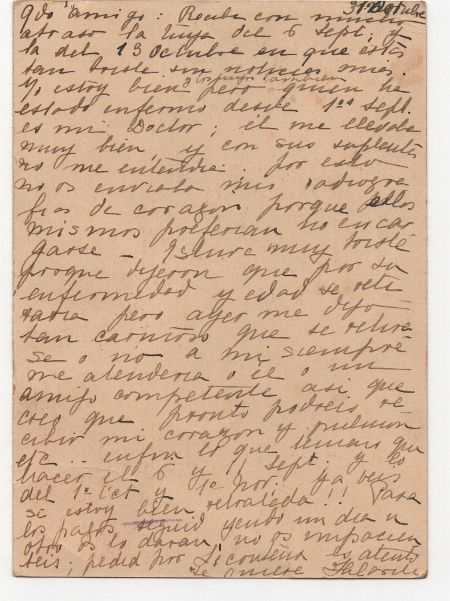 31 Octubre
Qdo amigo: Recibí con mucho
atraso la tuya del 6 Sept. y
la del 13 Octubre en que estás
tan triste sin noticias mías.
Yo estoy bien pero quien ha
estado enfermo desde 1os Sept.
es mi Doctor; él me llevaba
muy bien y con sus suplentes
no me entendía. por esto
no os enviaba mis radiogra
fias de corazon porque ellos
mismos preferian no encar
garse — Estuve muy triste
porque dijeron que por su
enfermedad y edad se reti
raria pero ayer me dijo
tan cariñoso que se retira
se o no a mi siempre
me atenderia o él o un
amigo competente asi que
creo que pronto podreis re
cibir mi corazon y pulmon
etc.. enfin lo que teniais que
hacer el 6 y Sept. y lo
del 1º Oct y 1º Nov. ya ves
si estoy bien retratada!! Para
los pagos seguid yendo un dia u
otro os lo daran, no os impacien
teis; pedid por si conviene
se quiere